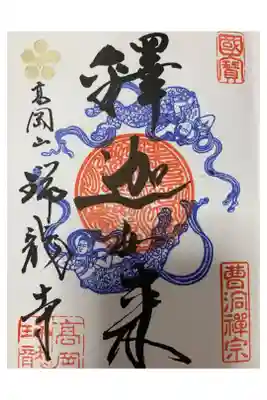 國寶
釋迦如来
曹洞禪宗
高岡山瑞龍寺
高岡
瑞龍